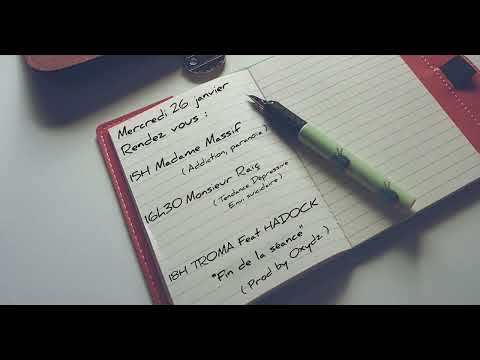 Mercredi 26 janvier
Rendez vous :
15H Madame Massif
( Addiction, paranoïa )
16h30 Monsieur Raiç
( Tendance Dépressive
Envi suicidaire )
18H TROMA Feat HADOCK
"Fin de la séance"
( Prod by Oxydz )